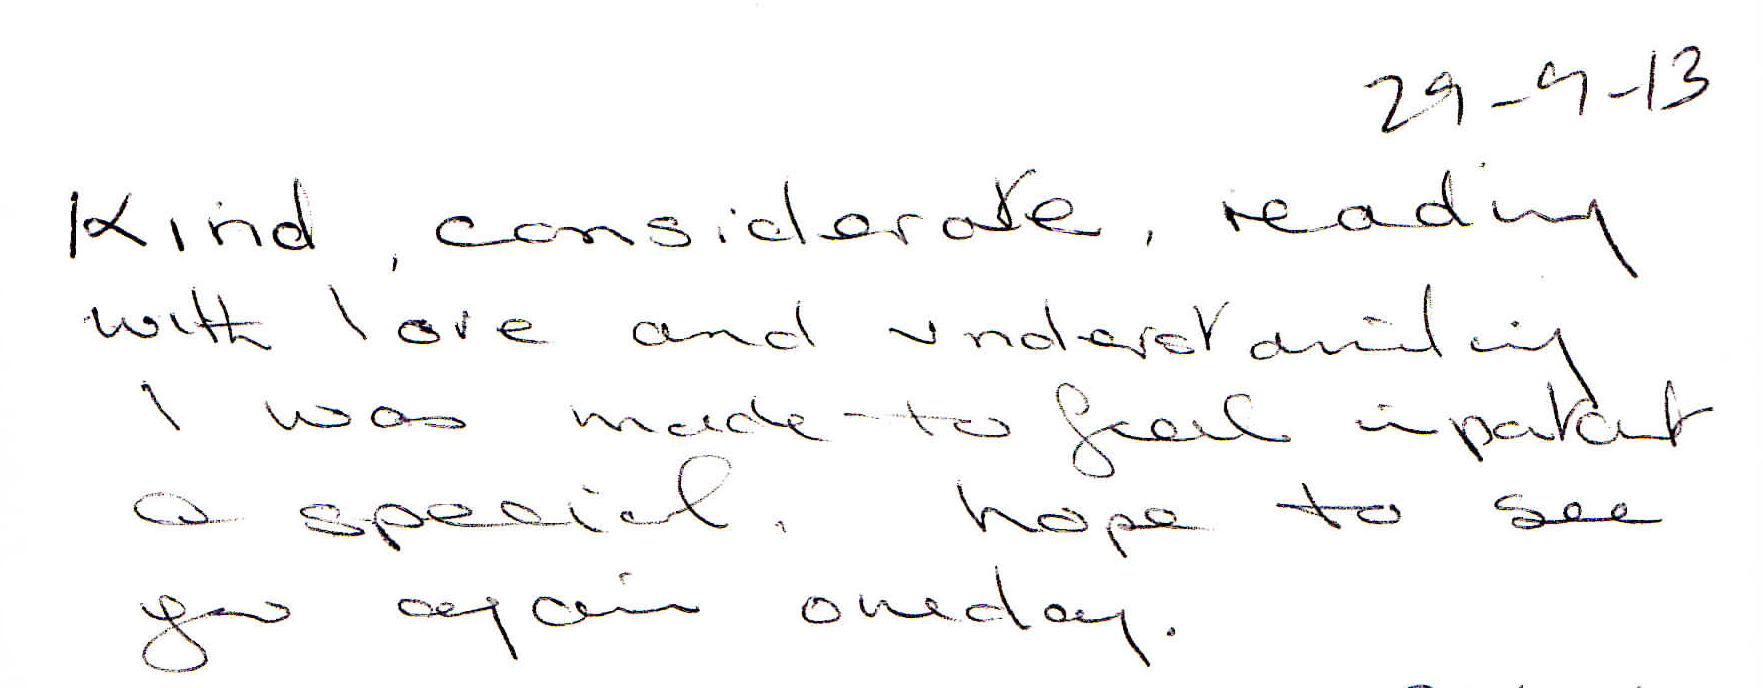 29-9-13
Kind, considerate, reading
with love and understanding
I was made to feel
a special. hope to see
you again oneday.